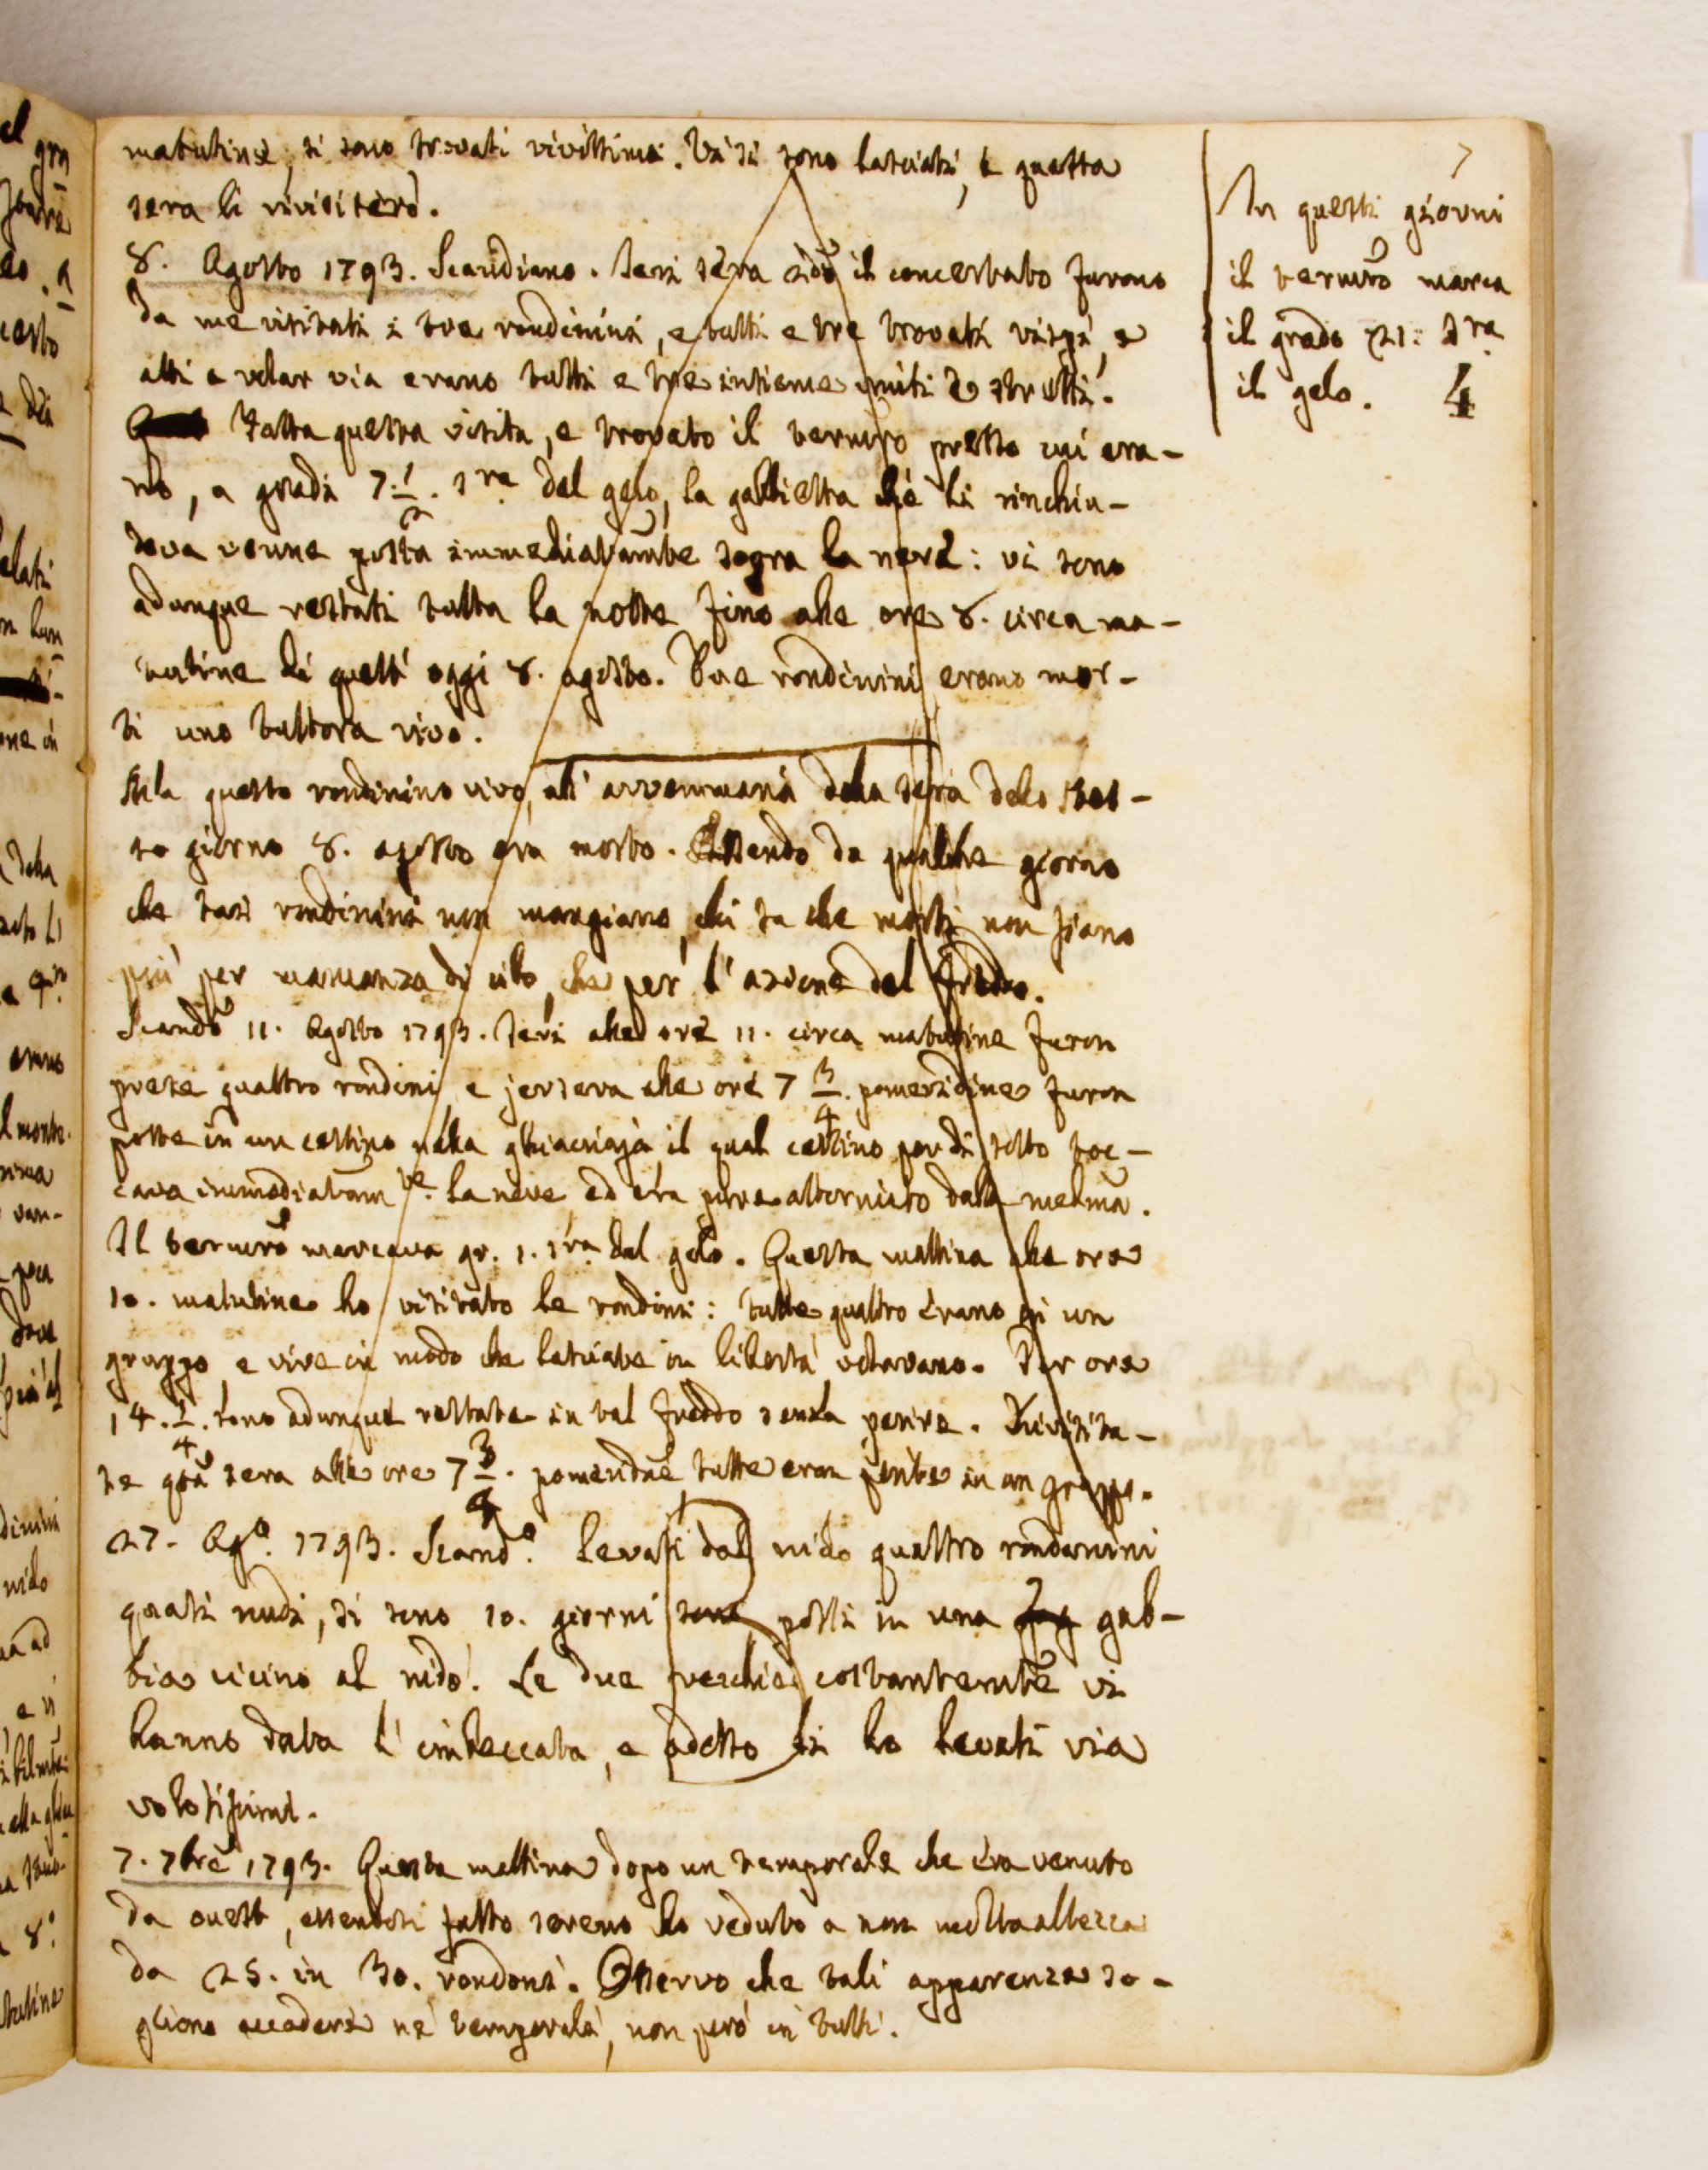 matutine, si sono trovati vivissimi. Vi si sono lasciati, e questa
sera li rivisiterò.
8. Agosto 1793. Scandiano. Jeri sera giũ il concertato furono
da me visitati i tre rondinini, e tutti e tre trovati vispi, e
atti a volar via erano tutti e tre insieme uniti e stretti.
Fatta questa visita, e trovato il termro presso cui era-
no, a gradi 7. 1/2. sra del gelo, la gabbietta che li rinchiu-
deva venne posta immediatamte sopra la neve: vi sono
adunque restati tutta la notte fino alle ore 8. circa ma-
tutine di questi oggi 8. agosto. Due rondinini erano mor-
ti uno tuttora vivo.
Ma questo rondinino vivo, all' avvemmaria della sera dello stes-
so giorno 8. agosto era morto. Essendo da qualche giorno
che tai rondinini non mangiano, chi sa che morti non siano
più per mancanza di cibo, che per l'azione del freddo.
Scando 11. Agosto 1793. Jeri alle ore 11. circa matutine furon
prese quattro rondini, e jersera alle ore 7 3/4. pomeridine furon
poste in un cestino nella ghiacciaja il qual cestino per di sotto toc-
cava immediatamte. la neve, ed era pure attorniato dalla medma.
Il termro marcava gr. 1. sra del gelo. Questa mattina alle ore
10. matutine ho visitato le rondini: tutte quattro erano in un
gruppo, e vive in modo che lasciate in libertà volavano. Per ore
14. 1/4. sono adunque restate in tal freddo senza perire. Rivisita-
te qta sera alle ore 7 3/4. pomeridne, tutte eran perite in un gruppo.
27. Ago. 1793. Scando. Levati dal nido quattro rondinini
quasi nudi, si sono 10. giorni sono posti in una gab-
bia vicino al nido. Le due vecchie costantemte vi
hanno data l'imbeccata, e adesso li ho levati via
volatissimi.
7. 7bre 1793. Questa mattina dopo un temporale che era venuto
da ouest, essendosi fatto sereno ho veduto a non molta altezza
da 25. in 30. rondoni. Osservo che tali apparenze so-
gliono accadere ne' temporali, non però in tutti.
7
In questi giorni
il termro marca
il grado 21: sra
il gelo. 4